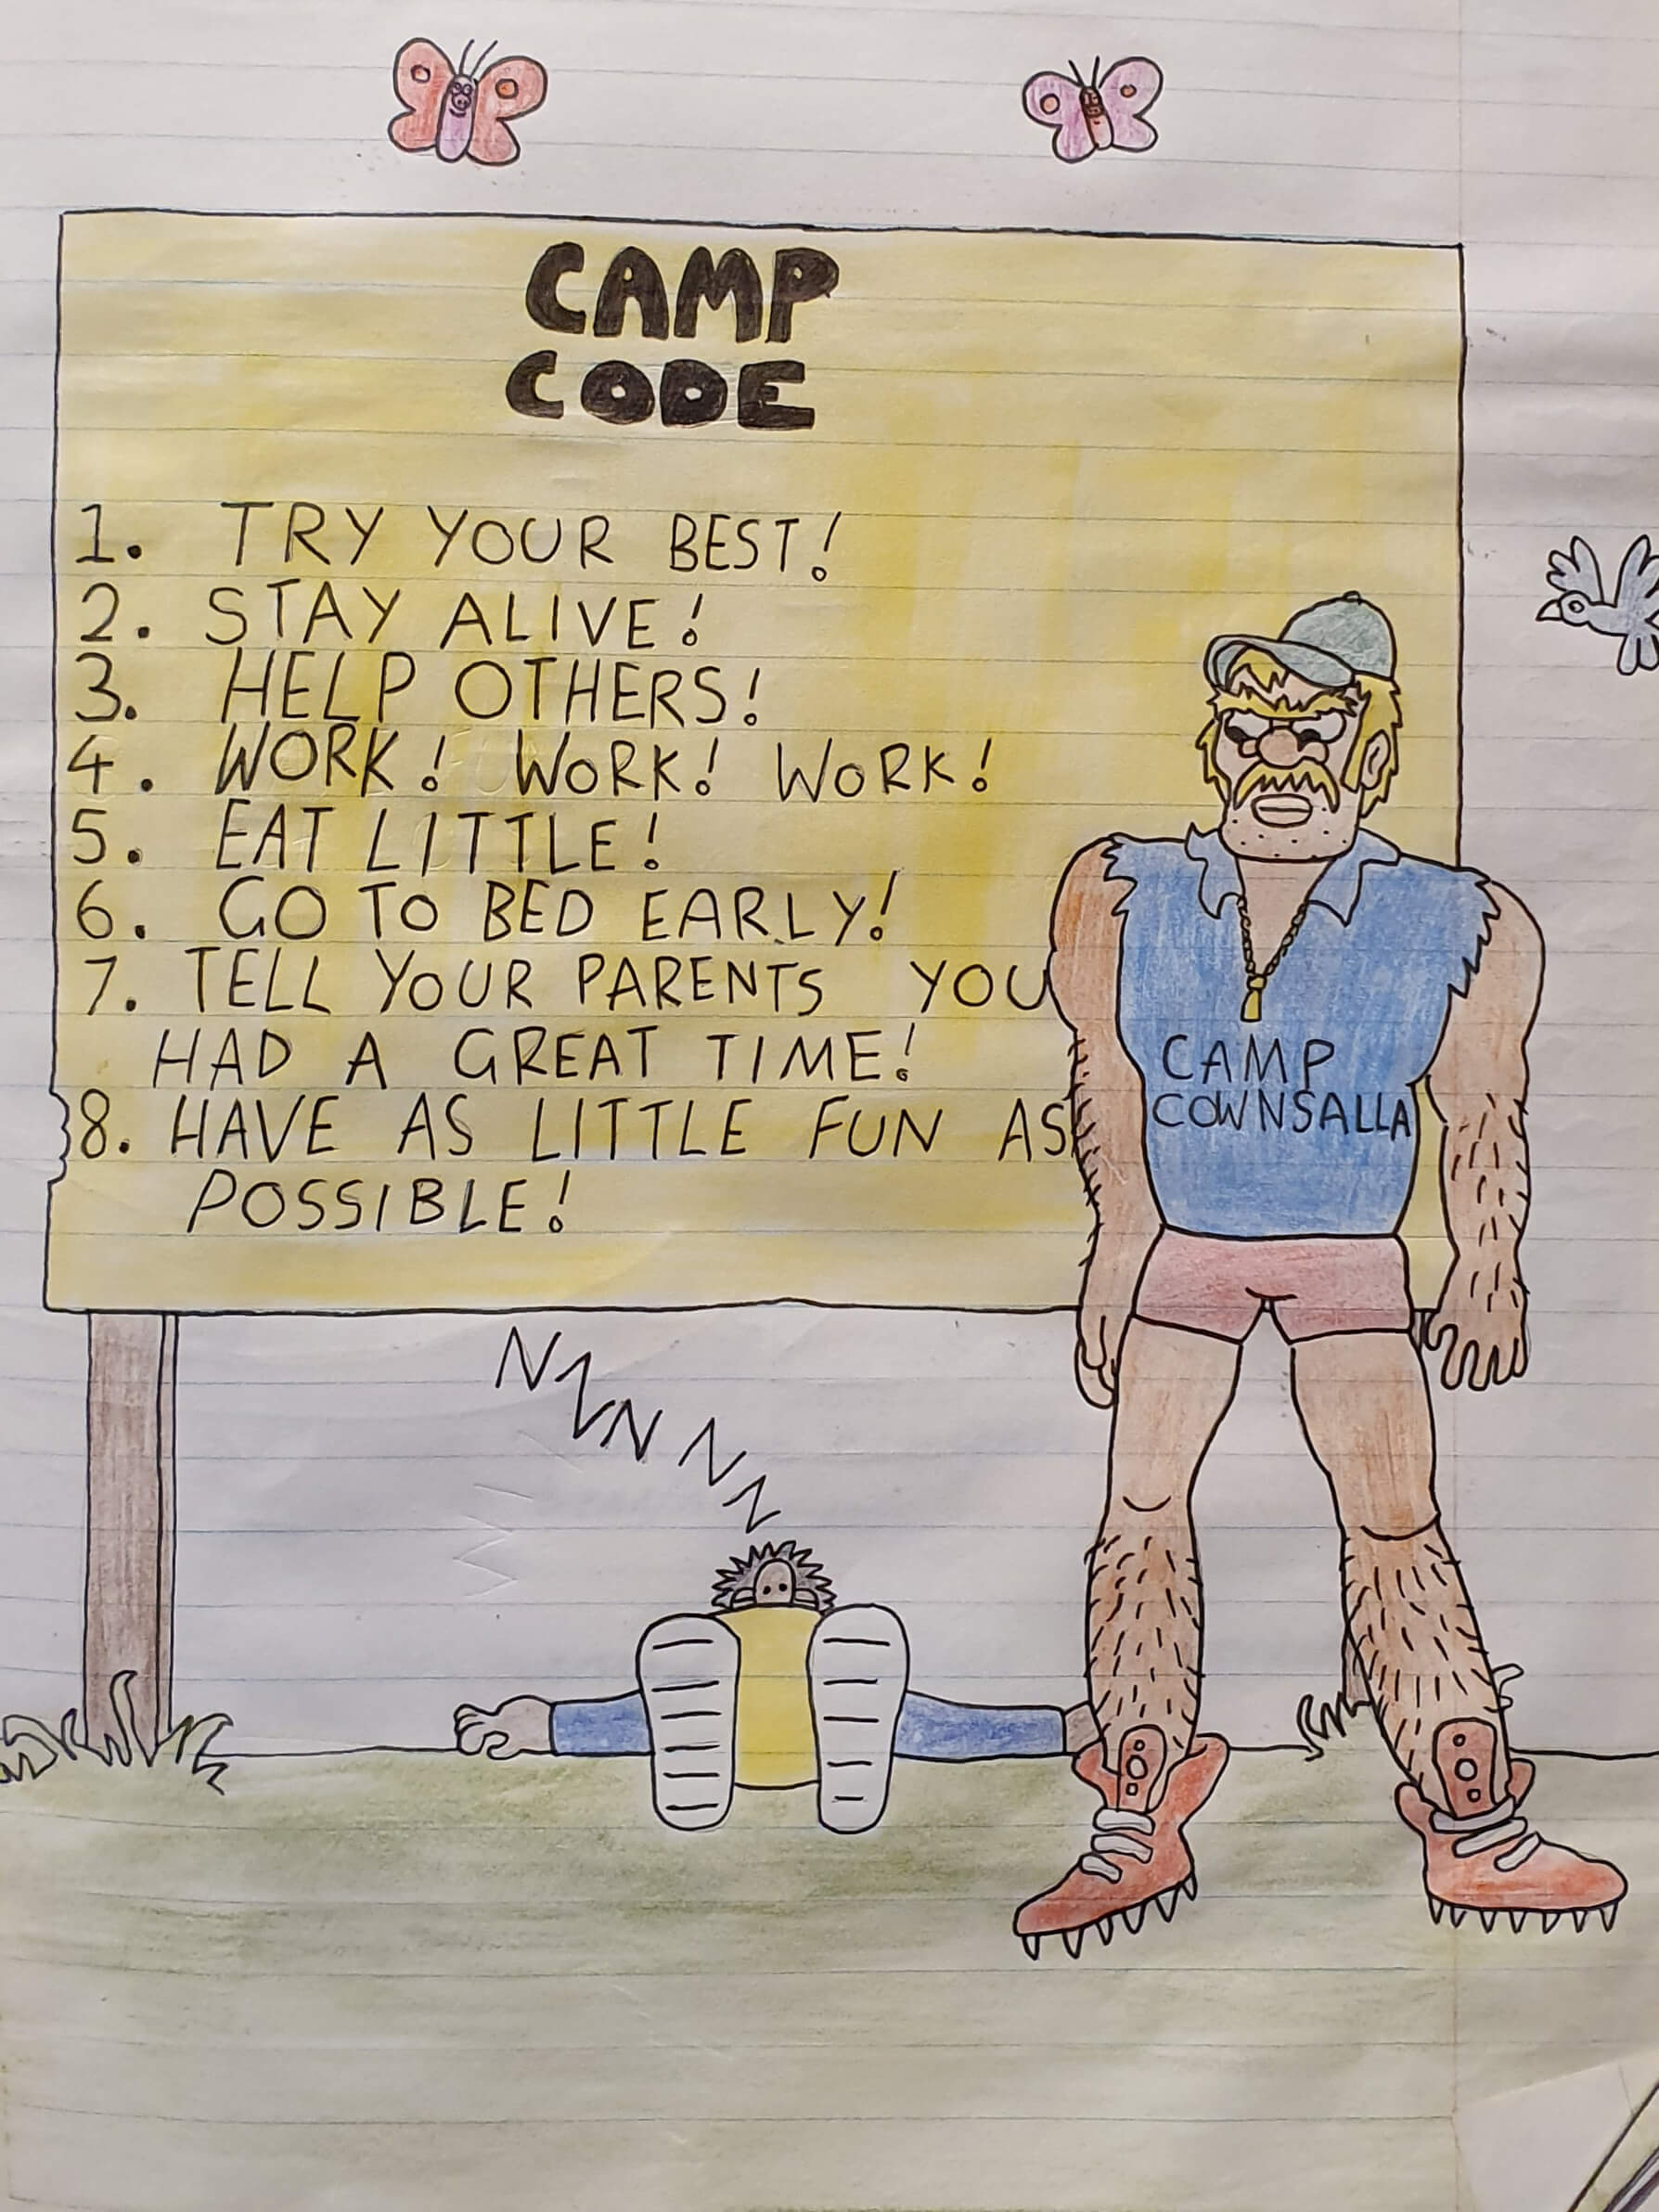 CAMP
CODE
1. TRY YOUR BEST!
2. STAY ALIVE!
3. HELP OTHERS!
4. WORK! WORK! WORK!
5. EAT LITTLE!
6. GO TO BED EARLY!
7. TELL YOUR PARENTS YOU
HAD A GREAT TIME!
8. HAVE AS LITTLE FUN AS
POSSIBLE!
CAMP
COWNSALLA
NZNNZ